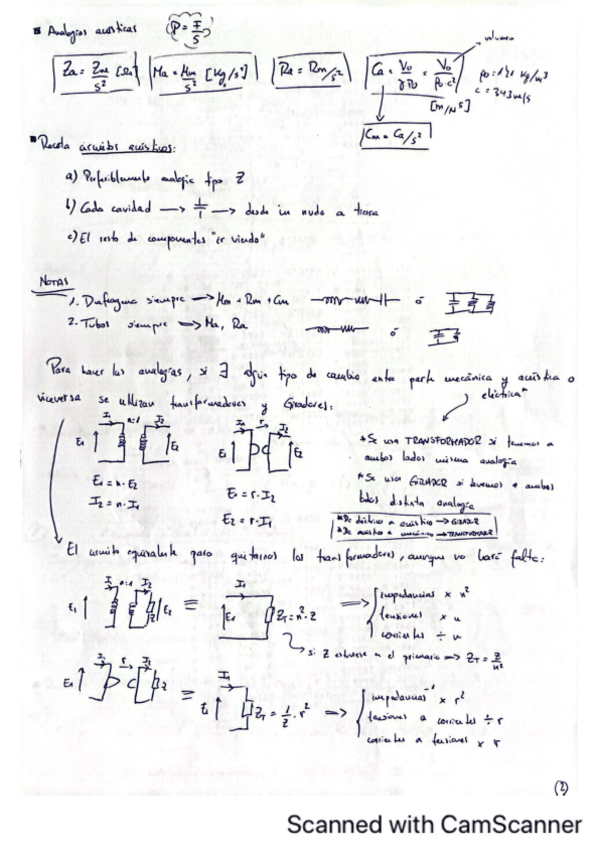 Analogías acústicas P = F/S
Za = Zm/S² [Ωa] Ma = Mm/S² [Kg/s⁴] Ra = Rm/S² Ca = Vo/γPo = Vo/ρo·c² volumen
ρo = 1'21 kg/m³
c = 343 m/s
[m/N⁵]
Cm = Ca/S²
Receta circuitos acústicos:
a) Preferiblemente analogía tipo Z
b) Cada cavidad → → desde un nudo a tierra
c) El resto de componentes "ir viendo"
NOTAS
1. Diafragma siempre → Mm + Rm + Cm ó
2. Tubos siempre → Ma, Ra ó
Para hacer las analogías, si ∃ algún tipo de cambio entre parte mecánica y acústica o
eléctrica*
viceversa se utilizan transformadores y Giradores:
I1 n:1 I2
E1 E2
I1 r I2
E1 E2
* Se usa TRANSFORMADOR si tenemos a
ambos lados misma analogía
* Se usa GIRADOR si tenemos a ambos
lados distinta analogía
E1 = n·E2
I2 = n·I1
E1 = r·I2
E2 = r·I1
* De eléctrico a acústico → GIRADOR
* De acústico a mecánico → TRANSFORMADOR
El circuito equivalente para quitarnos los transformadores, aunque no hará falta:
I1 n:1 I2
E1 Z E2
≡
I1
E1 ZT = n²·Z
⇒ impedancias x n²
tensiones x n
corrientes ÷ n
si Z estuviese en el primario → ZT = Z/n²
I1 r I2
E1 Z
≡
I1
E1 ZT = 1/Z · r²
⇒ impedancias⁻¹ x r²
tensiones a corrientes ÷ r
corrientes a tensiones x r
(2)
Scanned with CamScanner